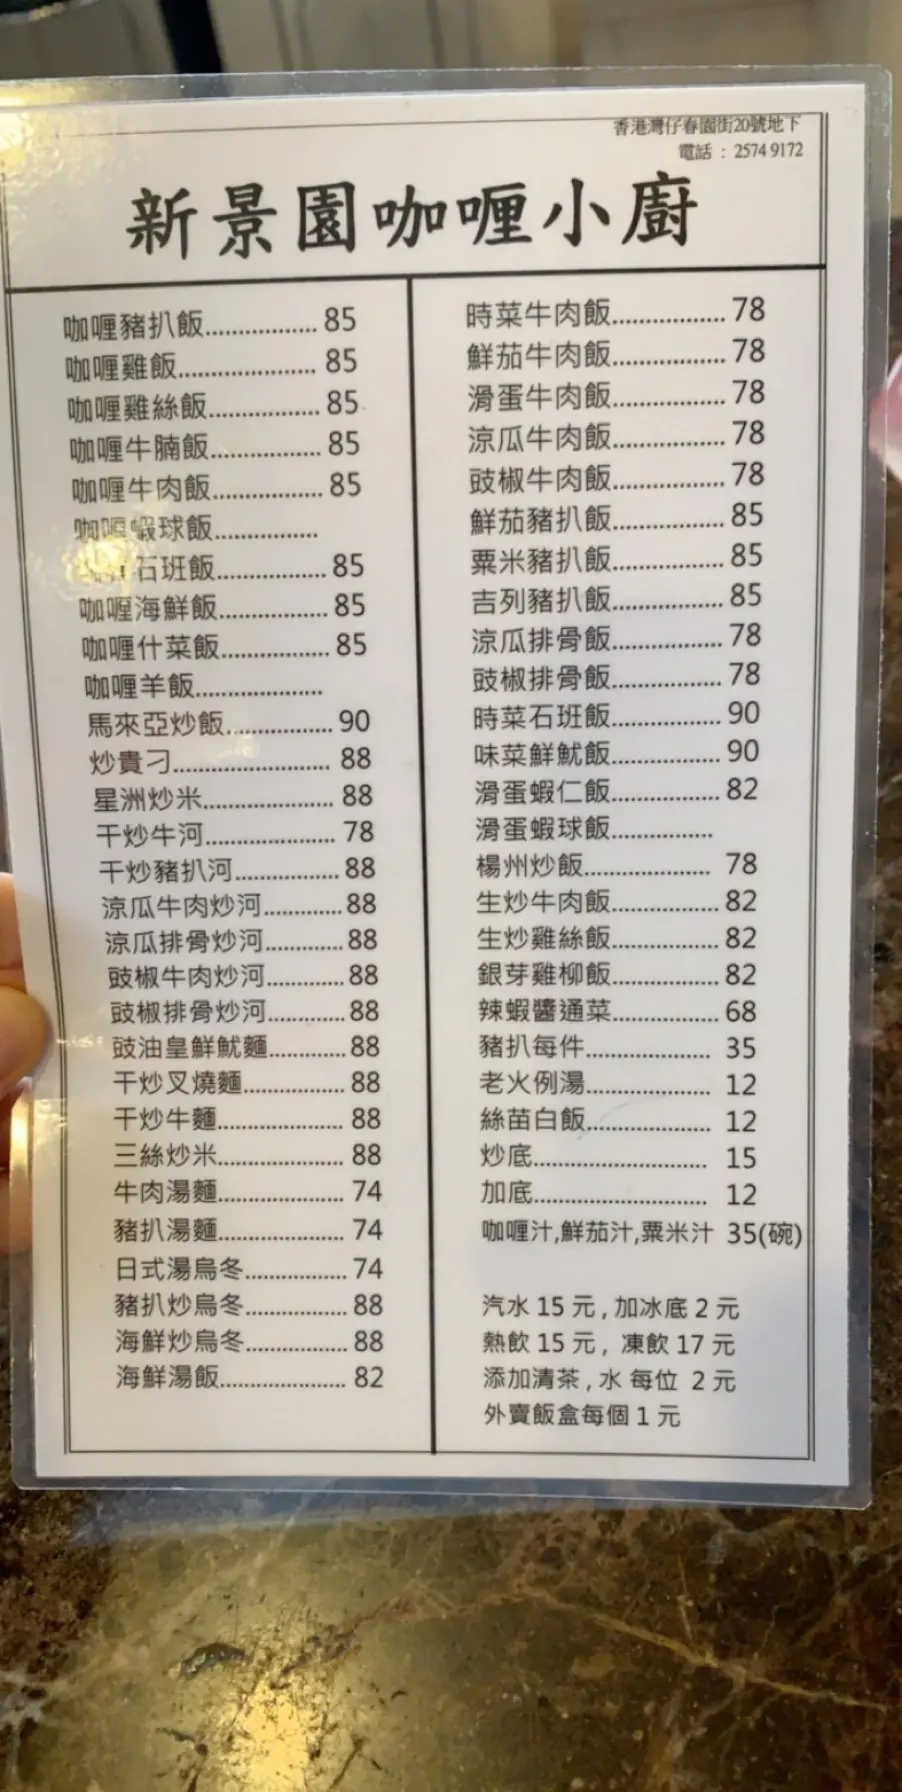 香港灣仔春園街20號地下
電話 : 2574 9172
新景園咖喱小廚
咖喱豬扒飯................. 85
咖喱雞飯..................... 85
咖喱雞絲飯................. 85
咖喱牛腩飯................. 85
咖喱牛肉飯................. 85
咖喱蝦球飯................
石班飯................. 85
咖喱海鮮飯................. 85
咖喱什菜飯................. 85
咖喱羊飯...................
馬來亞炒飯................. 90
炒貴刁........................ 88
星洲炒米.................... 88
干炒牛河.................... 78
干炒豬扒河................ 88
涼瓜牛肉炒河............ 88
涼瓜排骨炒河............ 88
豉椒牛肉炒河............ 88
豉椒排骨炒河............ 88
豉油皇鮮魷麵............ 88
干炒叉燒麵................ 88
干炒牛麵.................... 88
三絲炒米.................... 88
牛肉湯麵.................... 74
豬扒湯麵.................... 74
日式湯烏冬................ 74
豬扒炒烏冬................ 88
海鮮炒烏冬................ 88
海鮮湯飯.................... 82
時菜牛肉飯................. 78
鮮茄牛肉飯................. 78
滑蛋牛肉飯................. 78
涼瓜牛肉飯................. 78
豉椒牛肉飯................. 78
鮮茄豬扒飯................. 85
粟米豬扒飯................. 85
吉列豬扒飯................. 85
涼瓜排骨飯................. 78
豉椒排骨飯................. 78
時菜石班飯................. 90
味菜鮮魷飯................. 90
滑蛋蝦仁飯................. 82
滑蛋蝦球飯................
楊州炒飯.................... 78
生炒牛肉飯................. 82
生炒雞絲飯................. 82
銀芽雞柳飯................. 82
辣蝦醬通菜................. 68
豬扒每件.................... 35
老火例湯.................... 12
絲苗白飯.................... 12
炒底............................ 15
加底............................ 12
咖喱汁,鮮茄汁,粟米汁 35(碗)
汽水 15 元 , 加冰底 2 元
熱飲 15 元 , 凍飲 17 元
添加清茶 , 水 每位 2 元
外賣飯盒每個 1 元